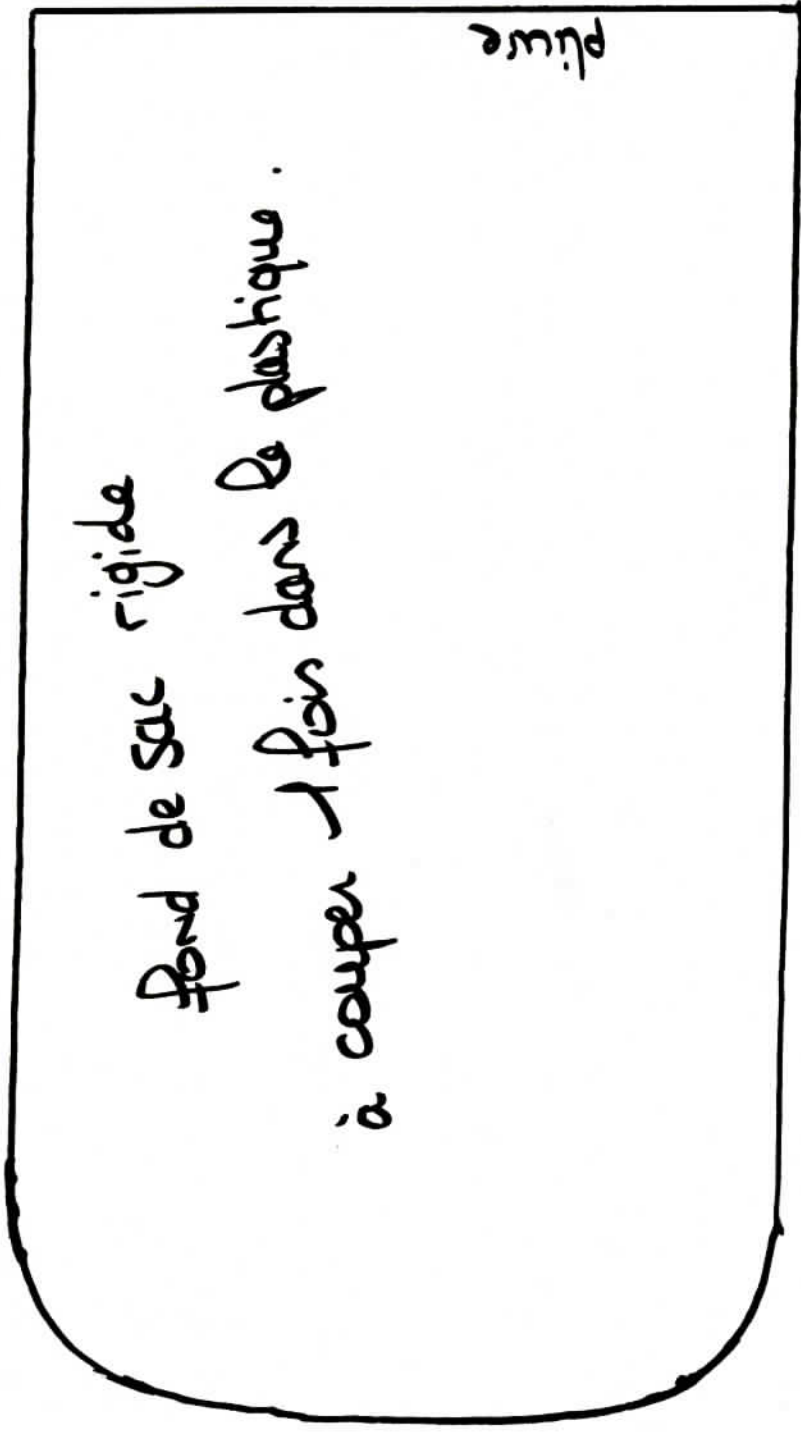 fond de sac rigide
à couper 1 fois dans le plastique.
pliure